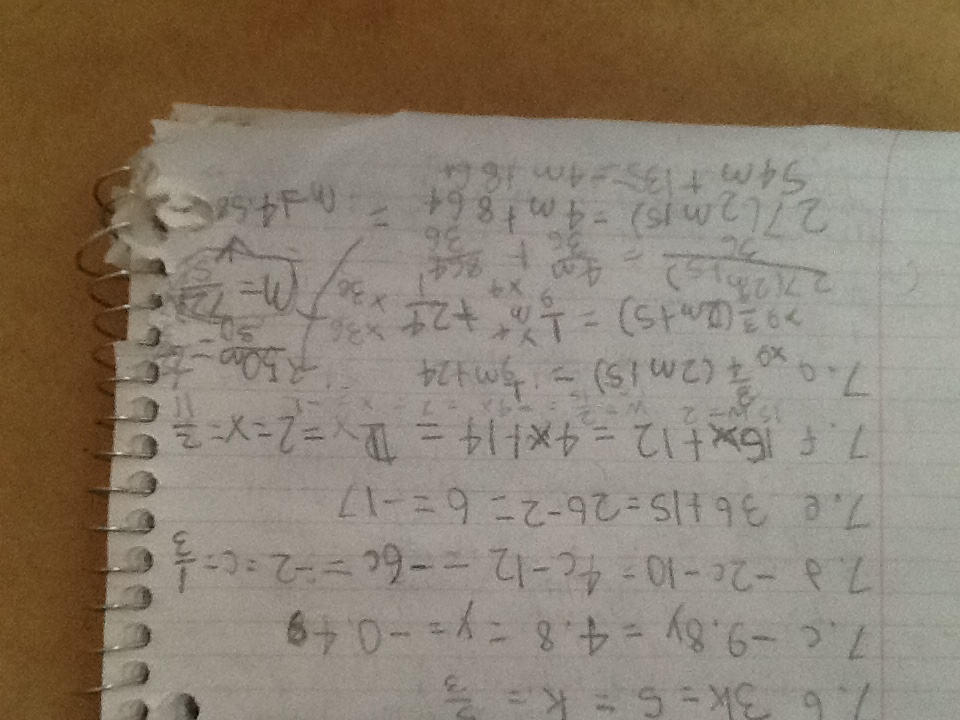 7.b 3k=5 = k = 5/3
7.c -9.8y = 4.8 = y = -0.49
7.d -2c-10 = 4c-12 = -6c = -2 = c = 1/3
7.e 3b+15=2b-2= b=-17
7.f 15x+12 = 4x+14 = 11x = 2 = x = 2/11
7.g x9 3/4 (2m+5) = 1/9m+24
x9 3/4 (2m+5) = 1/9 m x4 x4 + 24/1 x36 x36
27(2m+5)/36 = 4m/36 + 864/36
27(2m+5) = 4m+864 =
54m+135=4m+864
50m
m=